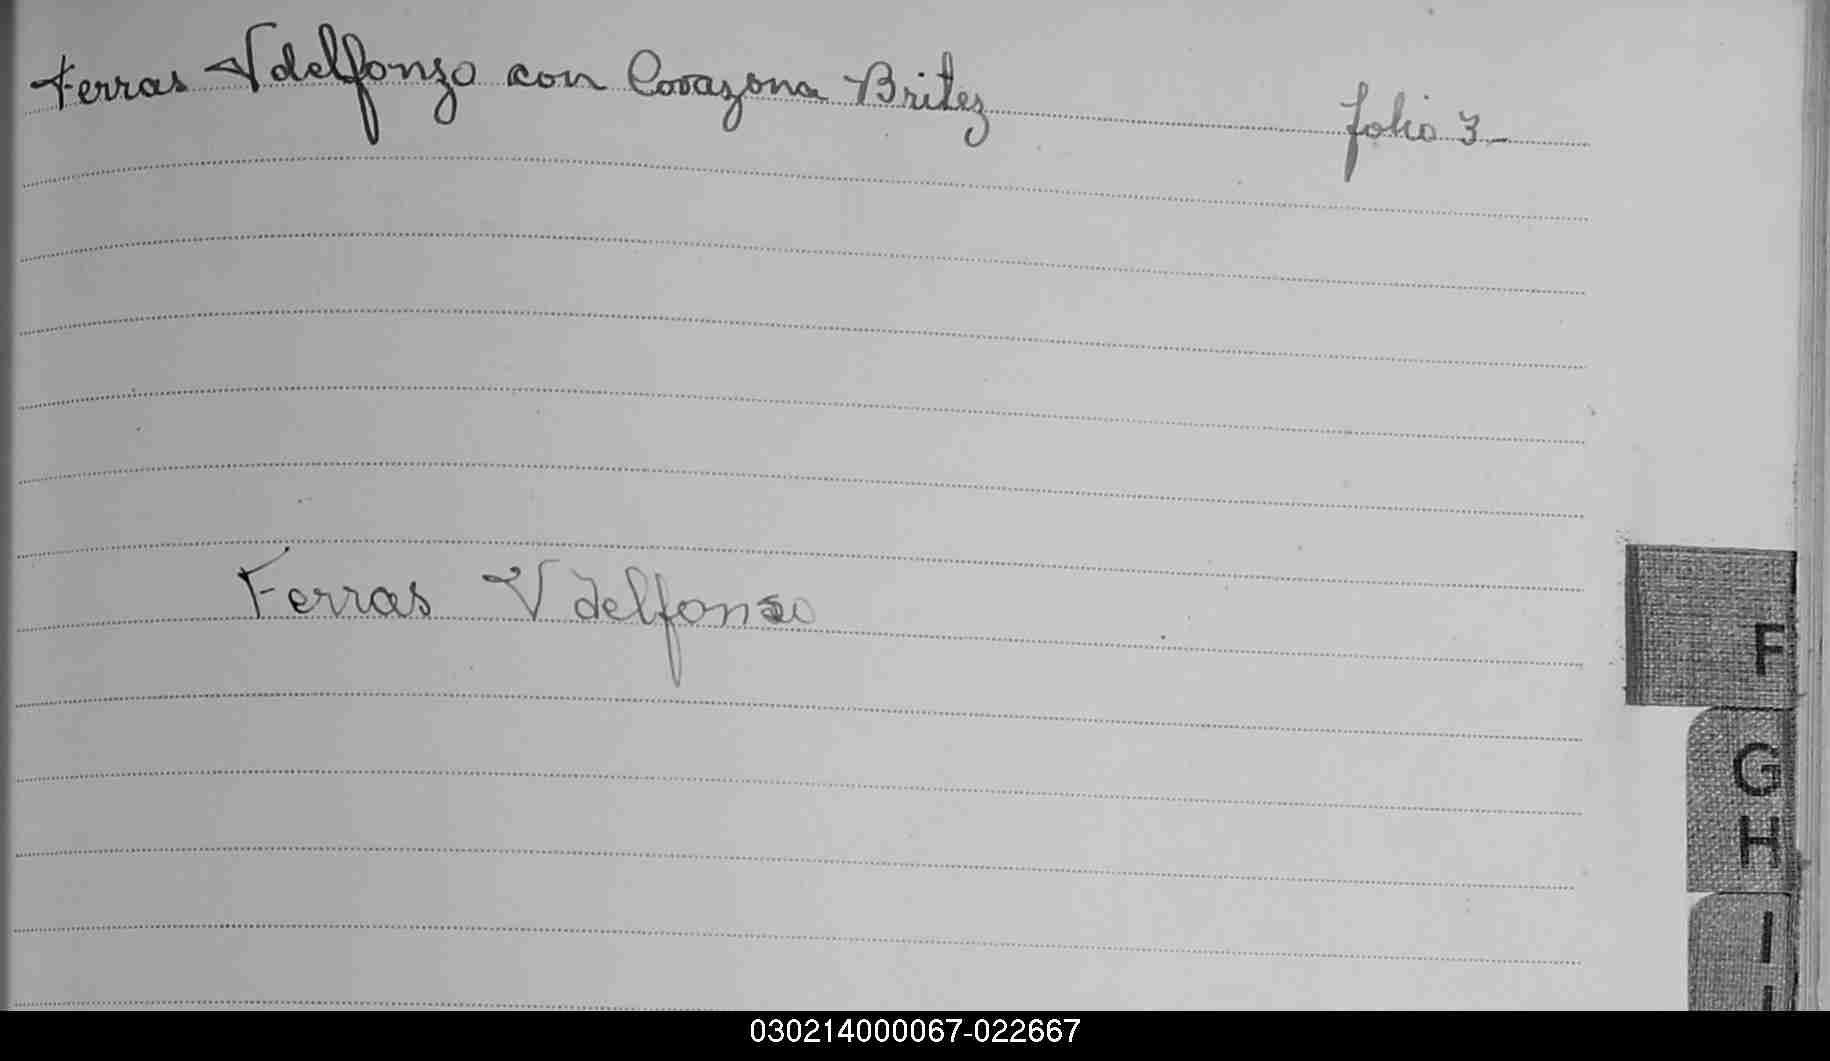 Ferras Ydelfonzo con Corazona Britez folio 3
Ferras Ydelfonso
F
G
H
I
030214000067-022667